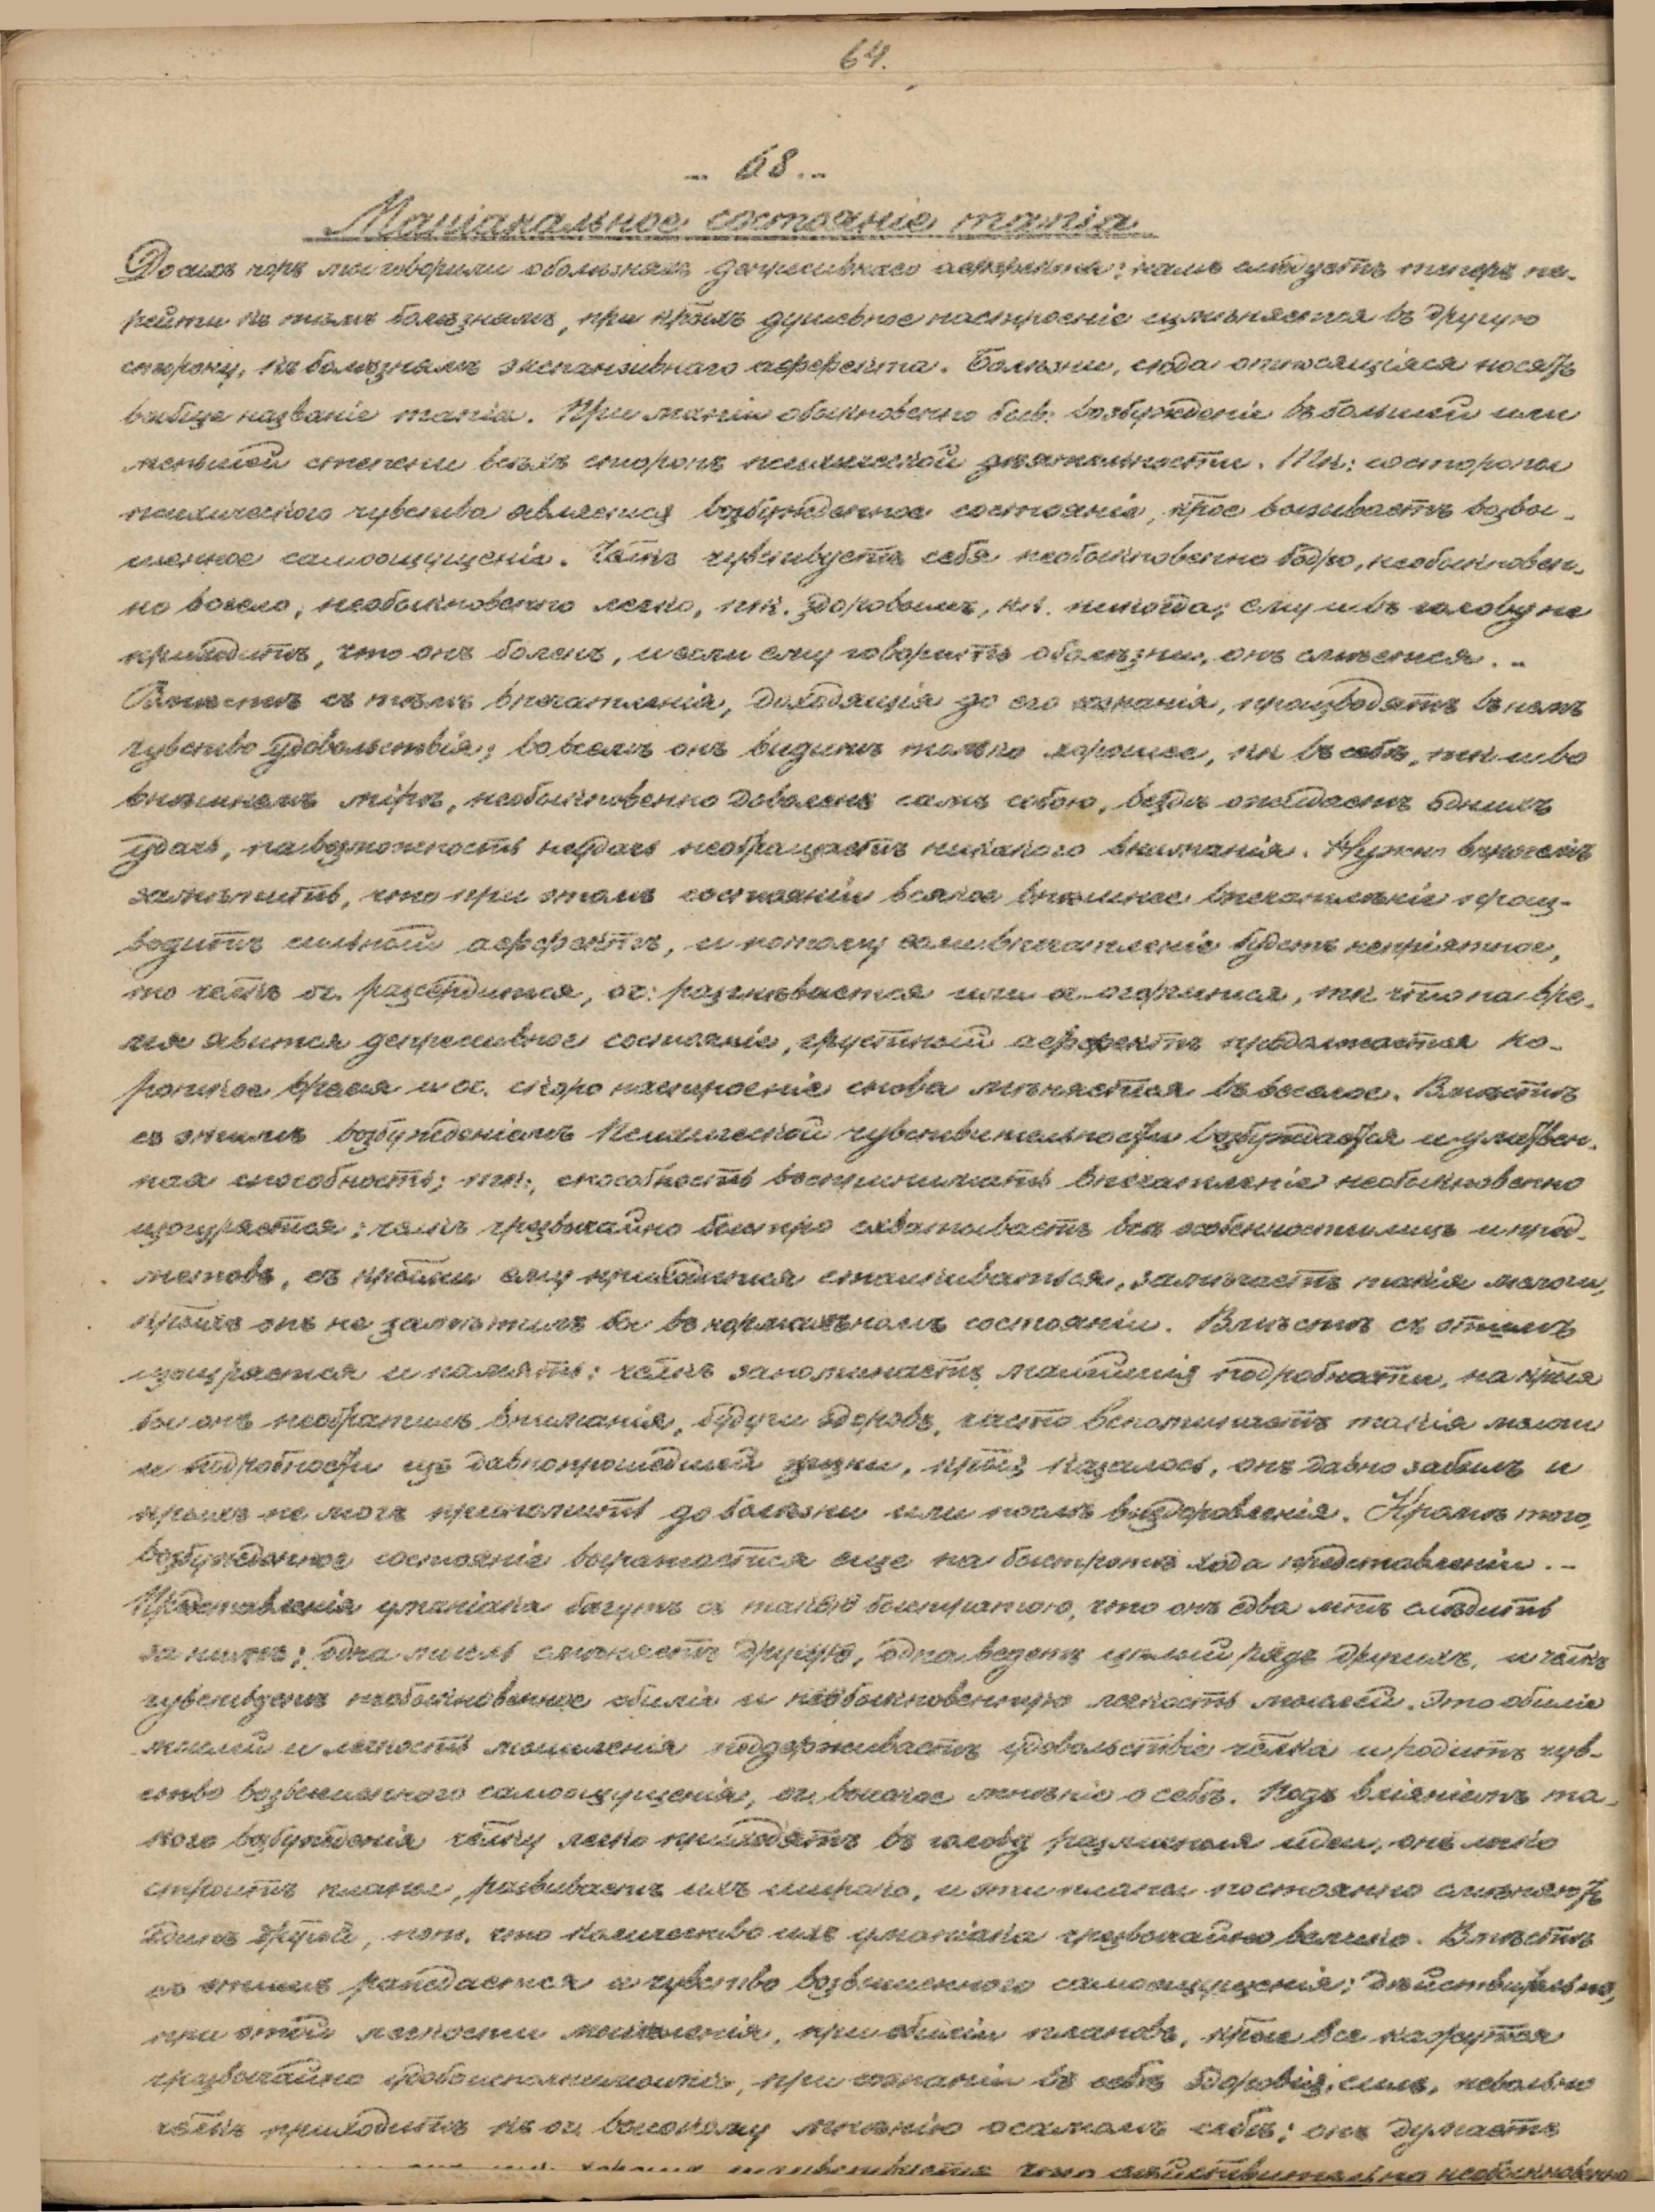 64.
- 68. -
Маніакальное состояніе mania
До сихъ поръ мы говорили о болѣзняхъ депрессивнаго аффекта; намъ слѣдуетъ теперь пе-
рейти къ тѣмъ болѣзнямъ, при крыхъ душевное настроеніе измѣняется въ другую
сторону, къ болѣзнямъ экспансивнаго аффекта. Болѣзни, сюда относящіяся носятъ
вообще названіе mania. При маніи обыкновенно быв: возбужденіе въ большей или
меньшей степени всѣхъ сторонъ психической дѣятельности. Тк: со стороны
психическаго чувства является возбужденное состояніе, крое вызываетъ возвы-
шенное самоощущеніе. Члкъ чувствуетъ себя необыкновенно бодро, необыкновен-
но весело, необыкновенно легко, тк. здоровымъ, кк. никогда; ему и въ голову не
приходитъ, что онъ боленъ, и если ему говорить о болѣзни, онъ смѣется. -
Вмѣстѣ съ тѣмъ впечатлѣнія, доходящія до его сознанія, производятъ въ немъ
чувство удовольствія; во всемъ онъ видитъ только хорошее, кк въ себѣ, тк и во
внѣшнемъ мірѣ, необыкновенно доволенъ самъ собою, вездѣ ожидаетъ однихъ
удачъ, на возможность неудачъ необращаетъ никакого вниманія. Нужно впрочемъ
замѣтить, что при этомъ состояніи всякое внѣшнее впечатлѣніе произ-
водитъ сильный аффектъ, и потому если впечатлѣніе будетъ непріятное,
то члкъ оч. разсердится, оч: разгнѣвается или оч огорчится, тк что на вре-
мя явится депрессивное состояніе, грустный аффектъ продолжается ко-
роткое время и оч. скоро настроеніе снова мѣняется въ веселое. Вмѣстѣ
съ этимъ возбужденіемъ психической чувствительности возбуждается и умствен-
ная способность; тк:, способность воспринимать впечатлѣніе необыкновенно
изощряется; члкъ чрезвычайно быстро схватываетъ всѣ особенности лицъ и пред-
метовъ, съ крыми ему приходится сталкиваться, замѣчаетъ такія мелочи,
крыхъ онъ не замѣтилъ бы въ нормальномъ состояніи. Вмѣстѣ съ этимъ
изощряется и память: члкъ запоминаетъ малѣйшія подробности, на крыя
бы онъ необратилъ вниманія, будучи здоровъ, часто вспоминаетъ такія мелочи
и подробности изъ давнопрошедшей жизни, крыя, казалось, онъ давно забылъ и
крыхъ не могъ припомнить до болѣзни или послѣ выздоровленія. Кромѣ того,
возбужденное состояніе выражается еще на быстротѣ хода представленій. -
Представленія у маніака бѣгутъ съ такою быстротою, что онъ едва мтъ слѣдить
за ними; одна мысль смѣняетъ другую, одна ведетъ цѣлый рядъ другихъ, и члкъ
чувствуетъ необыкновенное обиліе и необыкновенную легкость мыслей. Это обиліе
мыслей и легкость мышленія поддерживаетъ удовольствіе члка и родитъ чув-
ство возвышеннаго самоощущенія, оч. высокое мнѣніе о себѣ. Подъ вліяніемъ та-
кого возбужденія члку легко приходятъ въ голову различныя идеи, онъ легко
строитъ планы, развиваетъ ихъ широко, и эти планы постоянно смѣняютъ
одинъ другой, пот. что количество ихъ у маніака чрезвычайно велико. Вмѣстѣ
съ этимъ рождается и чувство возвышеннаго самоощущенія; дѣйствительно,
при этой легкости мышленія, при обиліи плановъ, крые все кажутся
чрезвычайно удобоисполнимыми, при сознаніи въ себѣ здоровья, силъ, невольно
члкъ приходитъ къ оч. высокому мнѣнію о самомъ себѣ; онъ думаетъ
что дѣйствительно необыкновенно